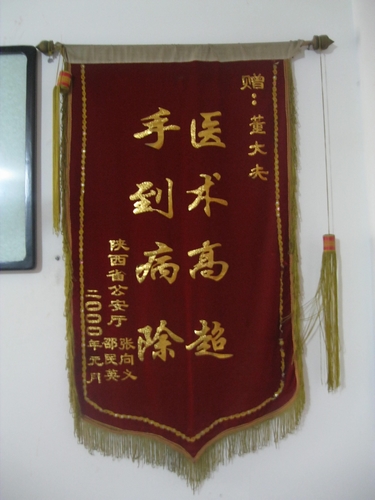 赠：董大夫
医术高超
手到病除
陕西省公安厅
张向义
邵民英
二000年元月